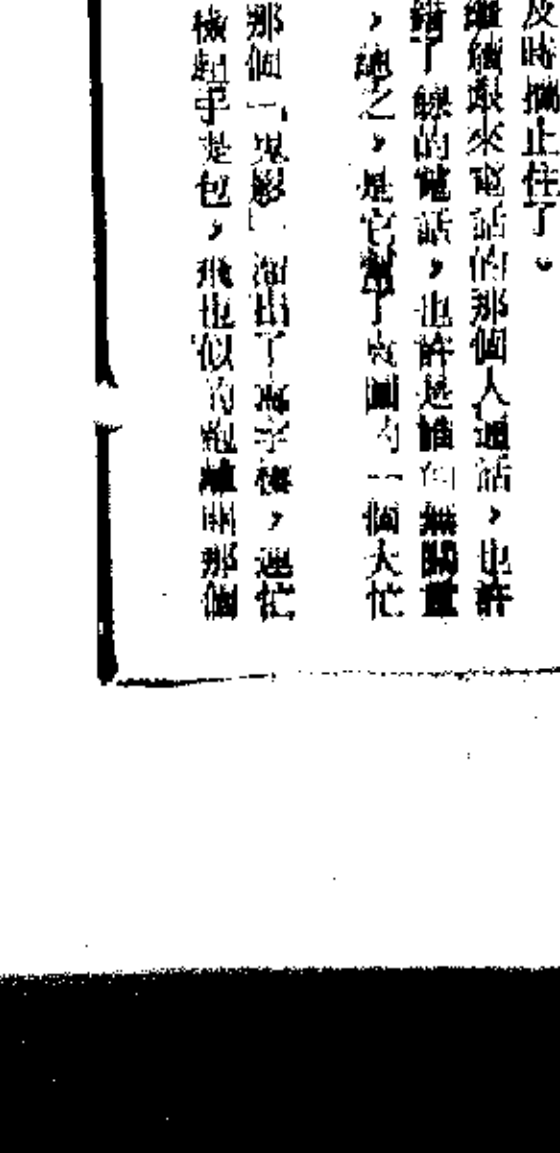 及時攔止住了。
繼續跟來電話的那個人通話，也許
錯了線的電話，也許是誰個無關重
，總之，是它幫了袁圓的一個大忙
那個「鬼影」溜出了寫字樓，連忙
起手提包，飛也似的跑離開那個